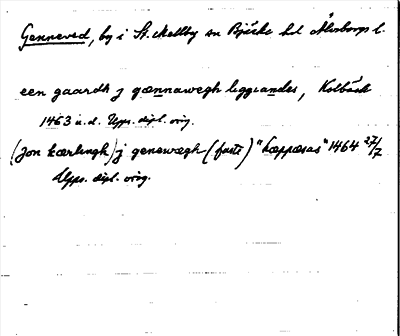 Genneved, by i St. Mellby sn Bjärke hd Älvsborgs l.
een gaardh j gænnawegh liggiandes, Kolbäck
1463 u.d. Upps. dipl. orig.
(Jon kærlingh) j genewægh (faste) "Læppæsas" 1464 27/7
Upps. dipl. orig.